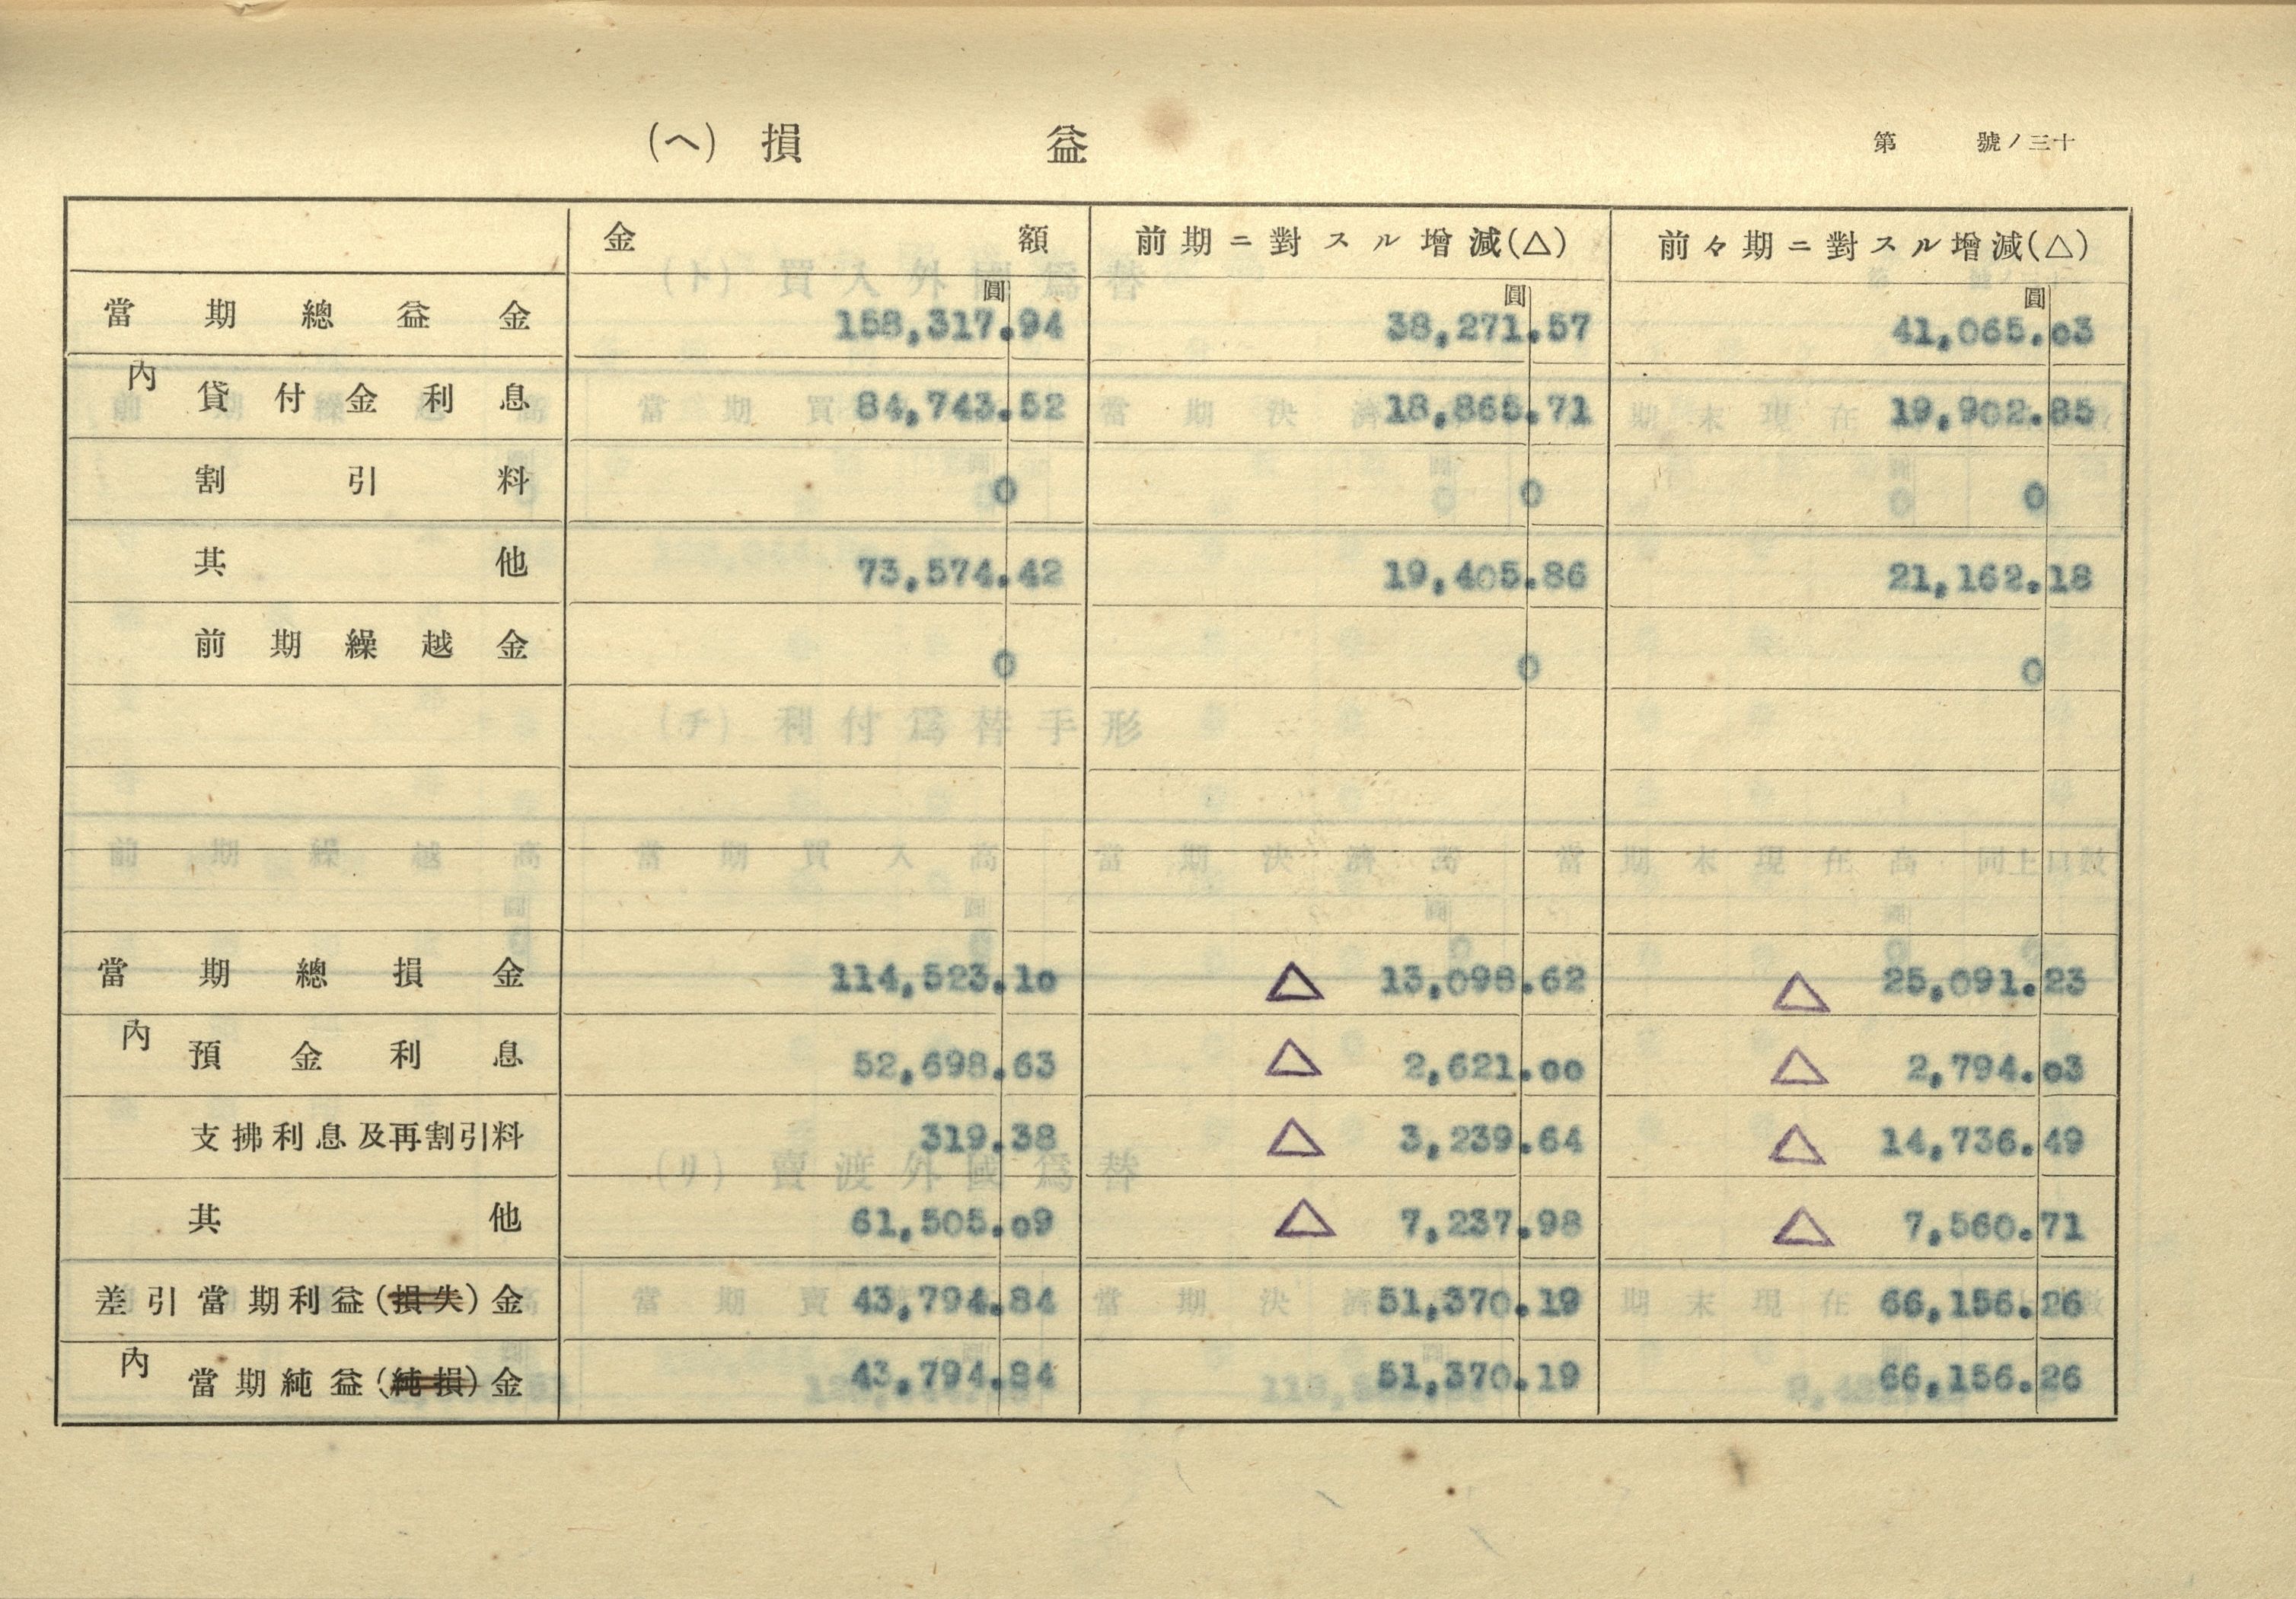 (ヘ) 損益
第 號ノ三十
金額 前期ニ對スル增減(△) 前々期ニ對スル增減(△)
圓 圓 圓
當期總益金 158,317.94 38,271.57 41,065.03
內 貸付金利息 84,743.52 18,865.71 19,902.85
割引料 0 0 0
其他 73,574.42 19,405.86 21,162.18
前期繰越金 0 0 0
當期總損金 114,523.10 △ 13,098.62 △ 25,091.23
內 預金利息 52,698.63 △ 2,621.00 △ 2,794.03
支拂利息及再割引料 319.38 △ 3,239.64 △ 14,736.49
其他 61,505.09 △ 7,237.98 △ 7,560.71
差引當期利益(損失)金 43,794.84 51,370.19 66,156.26
內 當期純益(純損)金 43,794.84 51,370.19 66,156.26